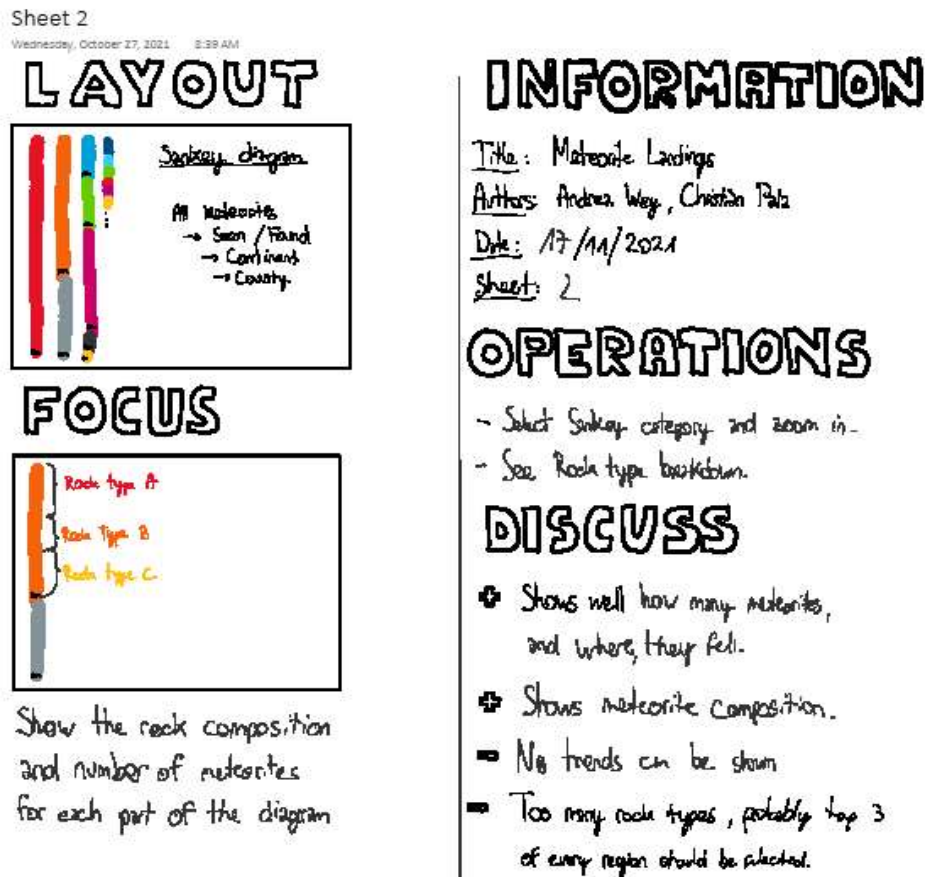 Sheet 2
Wednesday, October 27, 2021 8:39 AM
LAYOUT
Sankey diagram
All Meteorites
→ Seen / Found
→ Continent
→ County.
FOCUS
Rock type A
Rock Type B
Rock type C
Show the rock composition
and number of meteorites
for each part of the diagram
INFORMATION
Title: Meteorite Landings
Authors: Andrea Wey, Christian
Date: 17/11/2021
Sheet: 2
OPERATIONS
- Select Sankey category and zoom in-
- See Rock type breakdown.
DISCUSS
+ Shows well how many meteorites,
and where, they fell.
+ Shows meteorite composition.
- No trends can be shown
- Too many rock types, probably top 3
of every region should be selected.